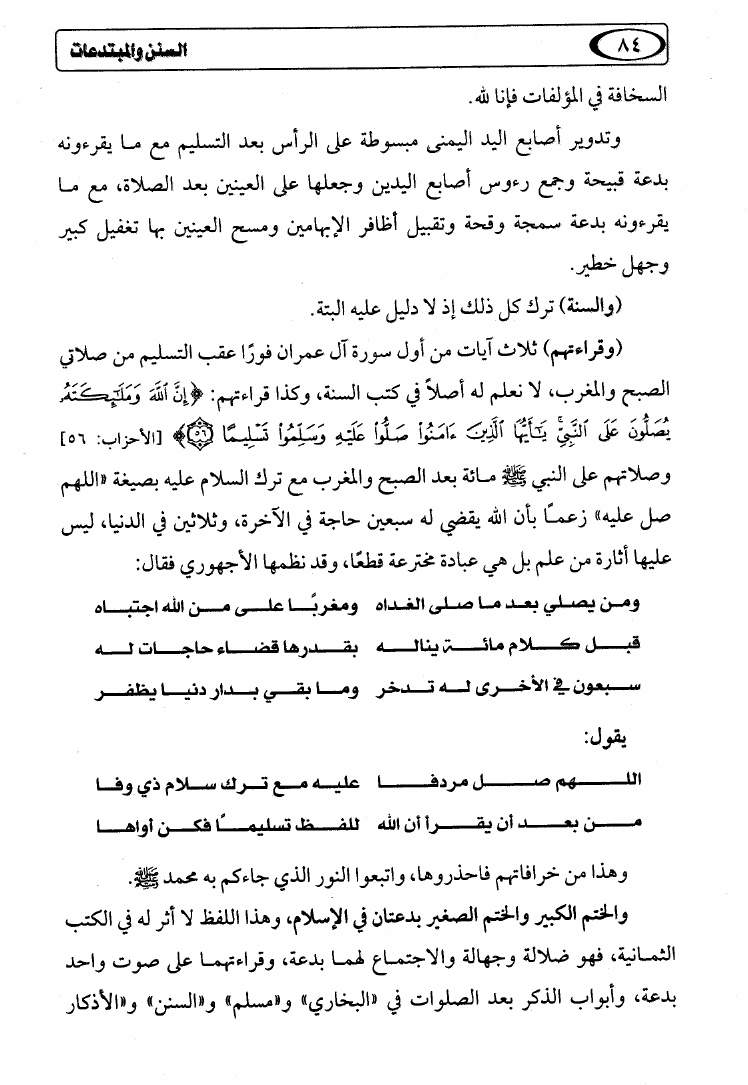 ٨٤
السنن والمبتدعات
السخافة في المؤلفات فإنا لله.
وتدوير أصابع اليد اليمنى مبسوطة على الرأس بعد التسليم مع ما يقرءونه
بدعة قبيحة وجمع رءوس أصابع اليدين وجعلها على العينين بعد الصلاة، مع ما
يقرءونه بدعة سمجة وقحة وتقبيل أظافر الإبهامين ومسح العينين بها تغفيل كبير
وجهل خطير.
(والسنة) ترك كل ذلك إذ لا دليل عليه البتة.
(وقراءتهم) ثلاث آيات من أول سورة آل عمران فورًا عقب التسليم من صلاتي
الصبح والمغرب، لا نعلم له أصلاً في كتب السنة، وكذا قراءتهم: ﴿إِنَّ ٱللَّهَ وَمَلَٰٓئِكَتَهُۥ
يُصَلُّونَ عَلَى ٱلنَّبِيِّۚ يَٰٓأَيُّهَا ٱلَّذِينَ ءَامَنُوا۟ صَلُّوا۟ عَلَيْهِ وَسَلِّمُوا۟ تَسْلِيمًا ۝٥٦﴾ [الأحزاب: ٥٦]
وصلاتهم على النبي ﷺ مائة بعد الصبح والمغرب مع ترك السلام عليه بصيغة «اللهم
صل عليه» زعمًا بأن الله يقضي له سبعين حاجة في الآخرة، وثلاثين في الدنيا، ليس
عليها أثارة من علم بل هي عبادة مخترعة قطعًا، وقد نظمها الأجهوري فقال:
ومن يصلي بعد ما صلى الغداه ومغربًا على من الله اجتباه
قبل كلام مائة يناله بقدرها قضاء حاجات له
سبعون في الأخرى له تدخر وما بقي بدار دنيا يظفر
يقول:
اللهم صل مردفا عليه مع ترك سلام ذي وفا
من بعد أن يقرأ أن الله للفظ تسليمًا فكن أواها
وهذا من خرافاتهم فاحذروها، واتبعوا النور الذي جاءكم به محمد ﷺ.
والختم الكبير والختم الصغير بدعتان في الإسلام، وهذا اللفظ لا أثر له في الكتب
الثمانية، فهو ضلالة وجهالة والاجتماع لهما بدعة، وقراءتهما على صوت واحد
بدعة، وأبواب الذكر بعد الصلوات في «البخاري» و«مسلم» و«السنن» و«الأذكار